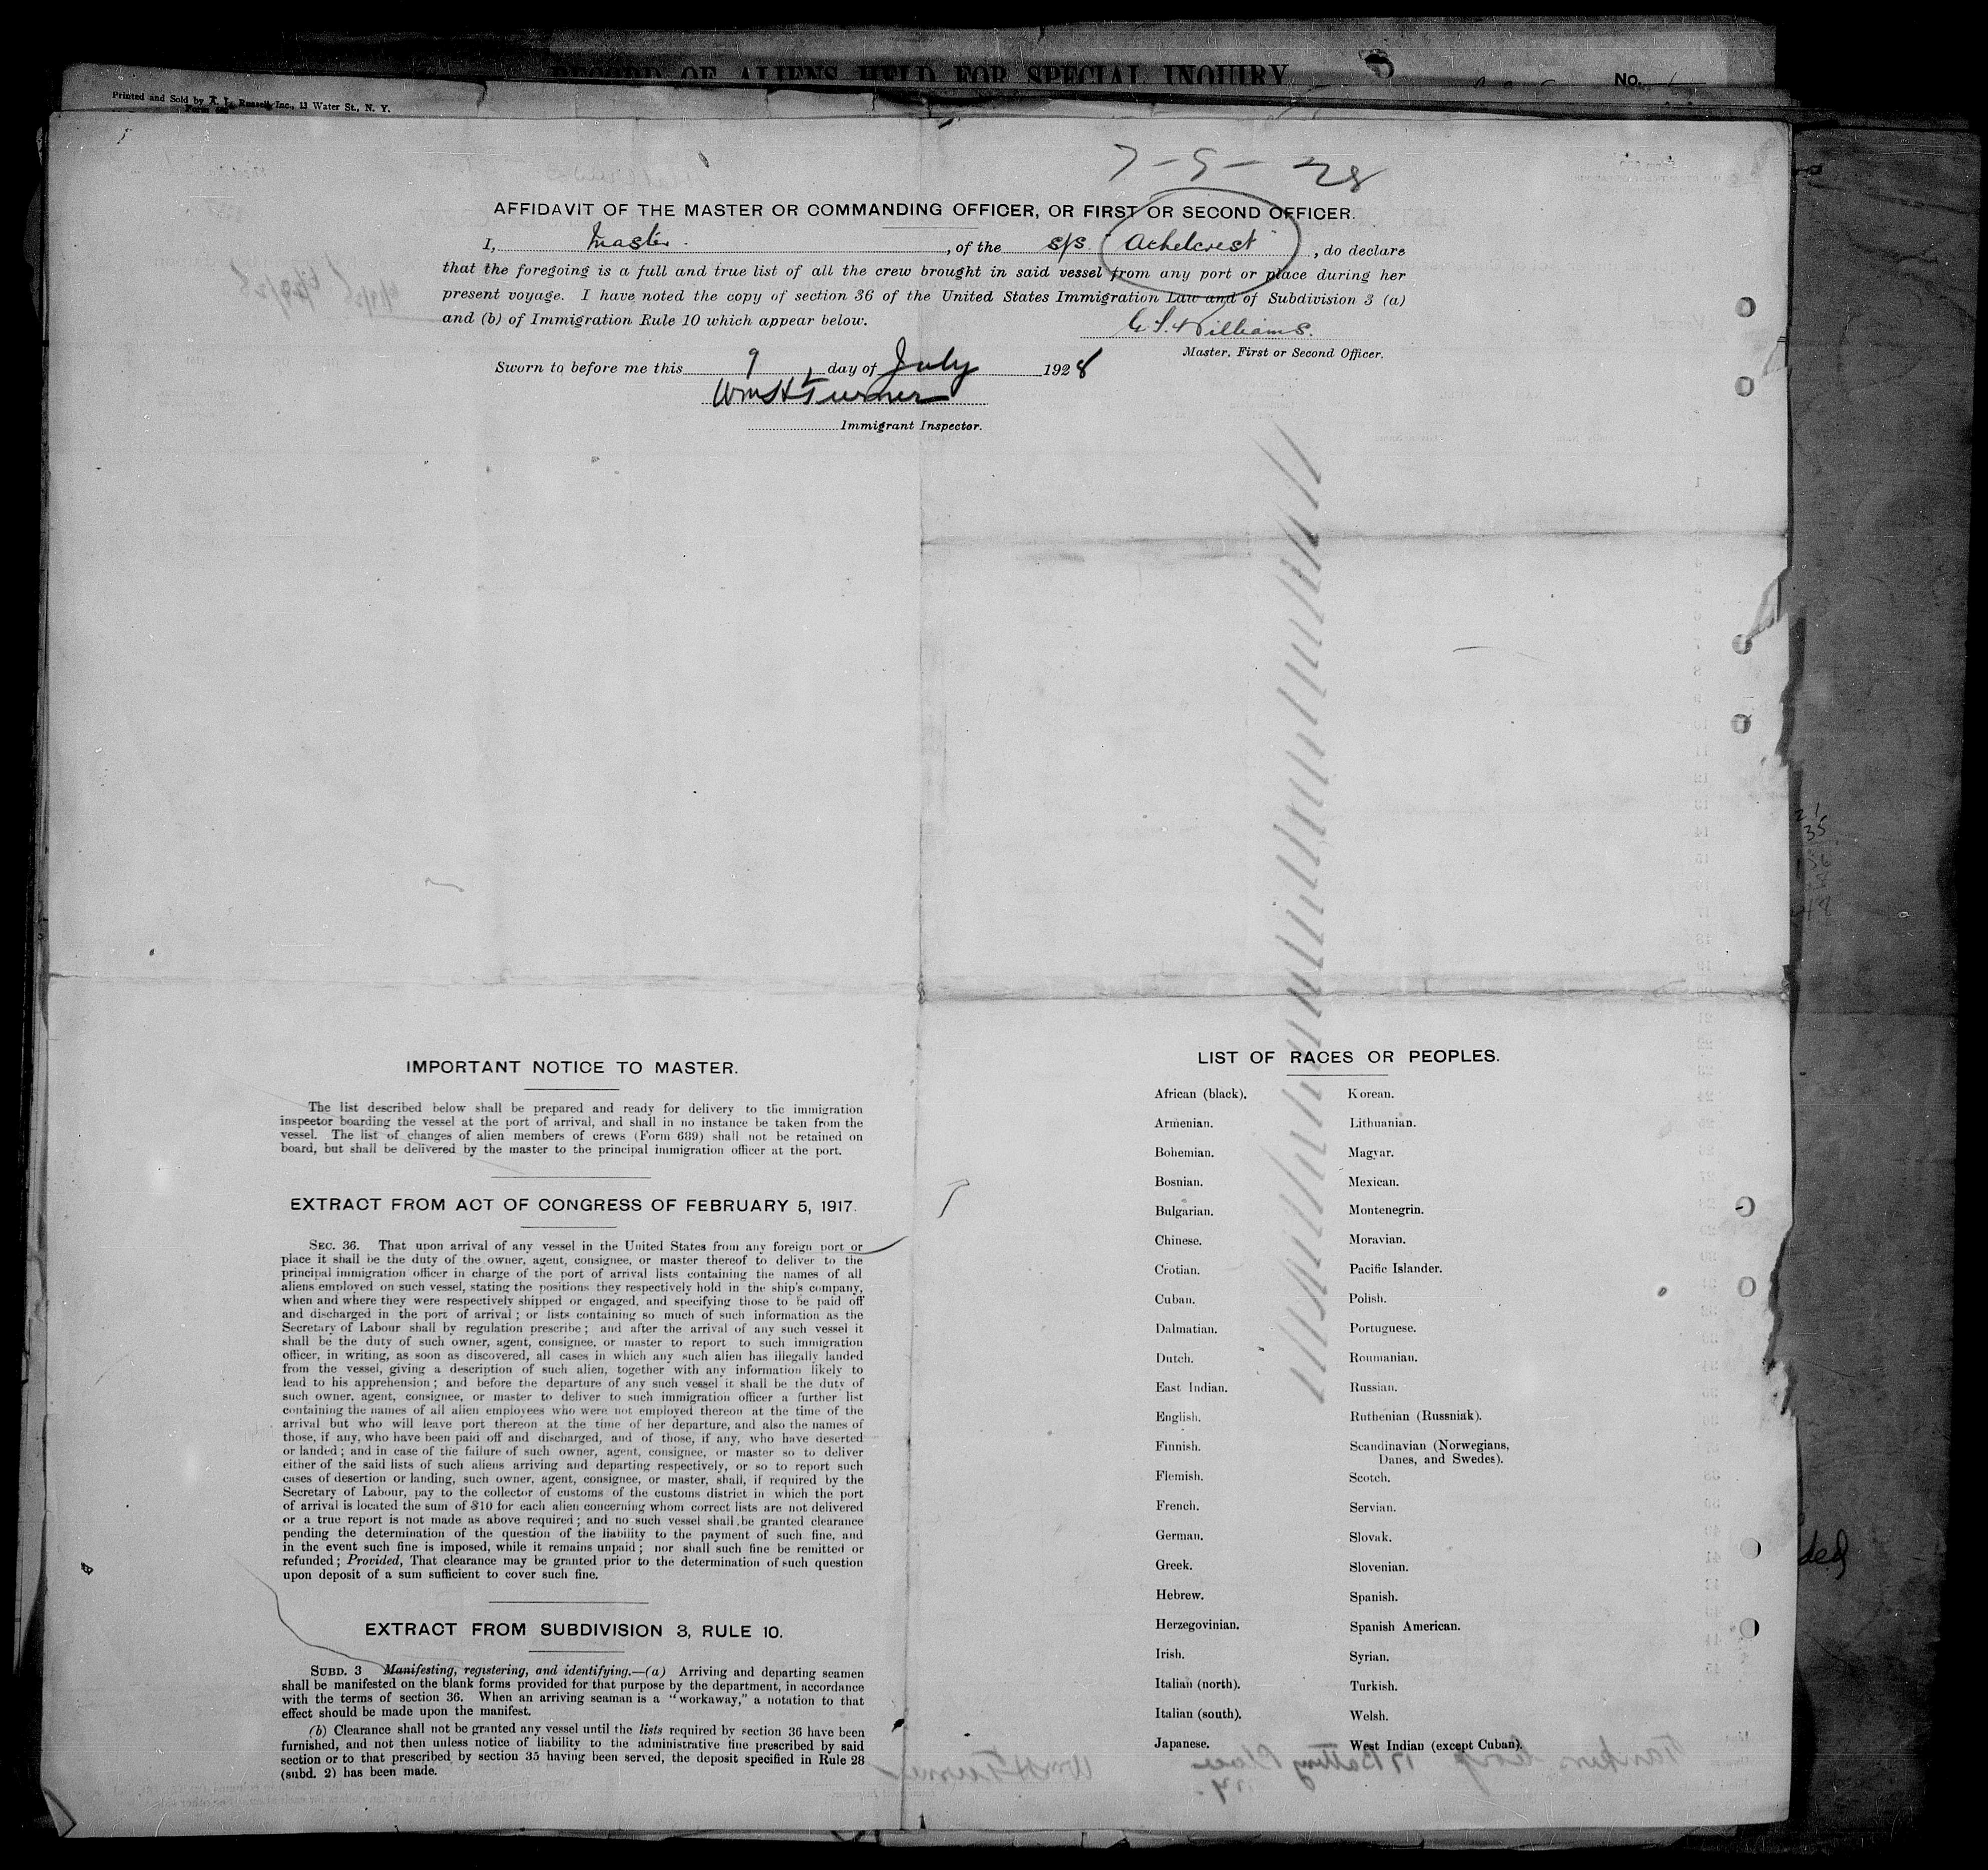 RECORD OF ALIENS HELD FOR SPECIAL INQUIRY
No.
Printed and Sold by A. L. Russell, Inc., 13 Water St., N. Y.
Form 680
7-9-28
AFFIDAVIT OF THE MASTER OR COMMANDING OFFICER, OR FIRST OR SECOND OFFICER.
I, Master. , of the s/s "Achelcrest" , do declare
that the foregoing is a full and true list of all the crew brought in said vessel from any port or place during her
present voyage. I have noted the copy of section 36 of the United States Immigration Law and of Subdivision 3 (a)
and (b) of Immigration Rule 10 which appear below.
Williams.
Master, First or Second Officer.
Sworn to before me this 9, day of July 1928
Wm H Turner
Immigrant Inspector.
IMPORTANT NOTICE TO MASTER.
The list described below shall be prepared and ready for delivery to the immigration
inspector boarding the vessel at the port of arrival, and shall in no instance be taken from the
vessel. The list of changes of alien members of crews (Form 689) shall not be retained on
board, but shall be delivered by the master to the principal immigration officer at the port.
EXTRACT FROM ACT OF CONGRESS OF FEBRUARY 5, 1917.
SEC. 36. That upon arrival of any vessel in the United States from any foreign port or
place it shall be the duty of the owner, agent, consignee, or master thereof to deliver to the
principal immigration officer in charge of the port of arrival lists containing the names of all
aliens employed on such vessel, stating the positions they respectively hold in the ship's company,
when and where they were respectively shipped or engaged, and specifying those to be paid off
and discharged in the port of arrival; or lists containing so much of such information as the
Secretary of Labour shall by regulation prescribe; and after the arrival of any such vessel it
shall be the duty of such owner, agent, consignee, or master to report to such immigration
officer, in writing, as soon as discovered, all cases in which any such alien has illegally landed
from the vessel, giving a description of such alien, together with any information likely to
lead to his apprehension; and before the departure of any such vessel it shall be the duty of
such owner, agent, consignee, or master to deliver to such immigration officer a further list
containing the names of all alien employees who were not employed thereon at the time of the
arrival but who will leave port thereon at the time of her departure, and also the names of
those, if any, who have been paid off and discharged, and of those, if any, who have deserted
or landed; and in case of the failure of such owner, agent, consignee, or master so to deliver
either of the said lists of such aliens arriving and departing respectively, or so to report such
cases of desertion or landing, such owner, agent, consignee, or master, shall, if required by the
Secretary of Labour, pay to the collector of customs of the customs district in which the port
of arrival is located the sum of $10 for each alien concerning whom correct lists are not delivered
or a true report is not made as above required; and no such vessel shall be granted clearance
pending the determination of the question of the liability to the payment of such fine, and
in the event such fine is imposed, while it remains unpaid; nor shall such fine be remitted or
refunded; Provided, That clearance may be granted prior to the determination of such question
upon deposit of a sum sufficient to cover such fine.
EXTRACT FROM SUBDIVISION 3, RULE 10.
SUBD. 3 Manifesting, registering, and identifying.—(a) Arriving and departing seamen
shall be manifested on the blank forms provided for that purpose by the department, in accordance
with the terms of section 36. When an arriving seaman is a "workaway," a notation to that
effect should be made upon the manifest.
(b) Clearance shall not be granted any vessel until the lists required by section 36 have been
furnished, and not then unless notice of liability to the administrative fine prescribed by said
section or to that prescribed by section 35 having been served, the deposit specified in Rule 28
(subd. 2) has been made.
LIST OF RACES OR PEOPLES.
African (black).
Armenian.
Bohemian.
Bosnian.
Bulgarian.
Chinese.
Crotian.
Cuban.
Dalmatian.
Dutch.
East Indian.
English.
Finnish.
Flemish.
French.
German.
Greek.
Hebrew.
Herzegovinian.
Irish.
Italian (north).
Italian (south).
Japanese.
Korean.
Lithuanian.
Magyar.
Mexican.
Montenegrin.
Moravian.
Pacific Islander.
Polish.
Portuguese.
Roumanian.
Russian.
Ruthenian (Russniak).
Scandinavian (Norwegians,
Danes, and Swedes).
Scotch.
Servian.
Slovak.
Slovenian.
Spanish.
Spanish American.
Syrian.
Turkish.
Welsh.
West Indian (except Cuban).